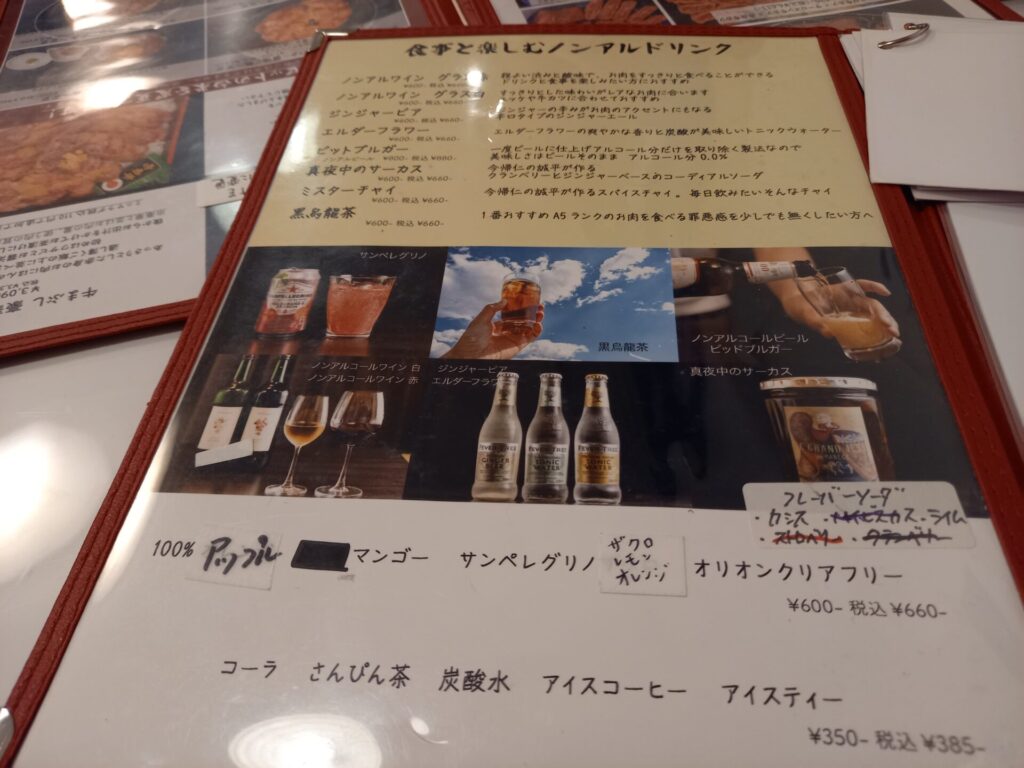 食事と楽しむノンアルドリンク
ノンアルワイン グラス赤 程よい渋みと酸味で、お肉をすっきりと食べることができる
¥600- 税込 ¥660- ドリンクと食事を楽しみたい方におすすめ
ノンアルワイン グラス白 すっきりとした味わいがレアなお肉に合います
¥600- 税込 ¥660- ユッケや牛カツに合わせておすすめ
ジンジャービア ジンジャーの辛みがお肉のアクセントにもなる
¥600- 税込 ¥660- 辛口タイプのジンジャーエール
エルダーフラワー エルダーフラワーの爽やかな香りと炭酸が美味しいトニックウォーター
¥600- 税込 ¥660-
ビットブルガー 一度ビールに仕上げアルコール分だけを取り除く製法なので
ノンアルビール ¥800- 税込 ¥880- 美味しさはビールそのまま アルコール分 0.0%
真夜中のサーカス 今帰仁の誠平が作る
¥600- 税込 ¥660- クランベリーとジンジャーベースのコーディアルソーダ
ミスターチャイ 今帰仁の誠平が作るスパイスチャイ。毎日飲みたいそんなチャイ
¥600- 税込 ¥660-
黒烏龍茶 1番おすすめ A5 ランクのお肉を食べる罪悪感を少しでも無くしたい方へ
¥600- 税込 ¥660-
サンペレグリノ
黒烏龍茶
ノンアルコールビール
ビッドブルガー
ノンアルコールワイン 白
ノンアルコールワイン 赤
ジンジャービア
エルダーフラワー
真夜中のサーカス
FEVER-TREE
GINGER BEER
FEVER-TREE
TONIC WATER
FEVER-TREE
TONIC WATER
フレーバーソーダ
・カシス ・ハイビスカス ・ライム
・ストロベリー ・クランベリー
100% アップル マンゴー サンペレグリノ ザクロ レモン オレンジ オリオンクリアフリー
¥600- 税込 ¥660-
コーラ さんぴん茶 炭酸水 アイスコーヒー アイスティー
¥350- 税込 ¥385-
牛まぶし